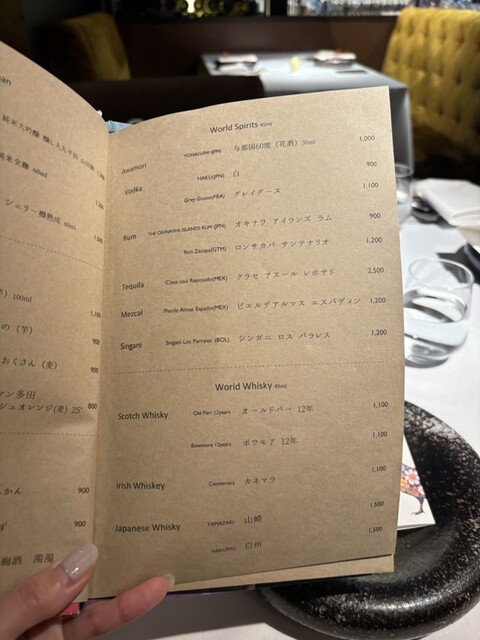 純米大吟醸 醸し人九平次
純米全麹 60ml
シェリー樽熟成 60ml
100ml
1,100
の（芋）
900
おくさん（麦）
900
多田
シュオレンジ(麦) 25° 800
かん
900
ず
900
梅酒
World Spirits 45ml
Awamori YONAGUNI(JPN) 与那国60度（花酒）30ml 1,000
Vodka HAKU(JPN) 白 900
Grey Goose(FRA) グレイグース 1,100
Rum THE OKINAWA ISLANDS RUM (JPN) オキナワ アイランズ ラム 900
Ron Zacapa(GTM) ロンサカパ サンテナリオ 1,200
Tequila Clase azul Reposado(MEX) クラセ アスール レポサド 2,500
Mezcal Pierde Almas Espadin(MEX) ピエルデアルマス エスパディン 1,200
Singani Singani Los Parrales (BOL) シンガニ ロス パラレス 1,200
World Whisky 45ml
Scotch Whisky Old Parr 12years オールドパー 12年 1,100
Bowmore 12years ボウモア 12年 1,100
Irish Whiskey Connemara カネマラ 1,100
Japanese Whisky YAMAZAKI 山崎 1,500
HAKUSHU 白州 1,500